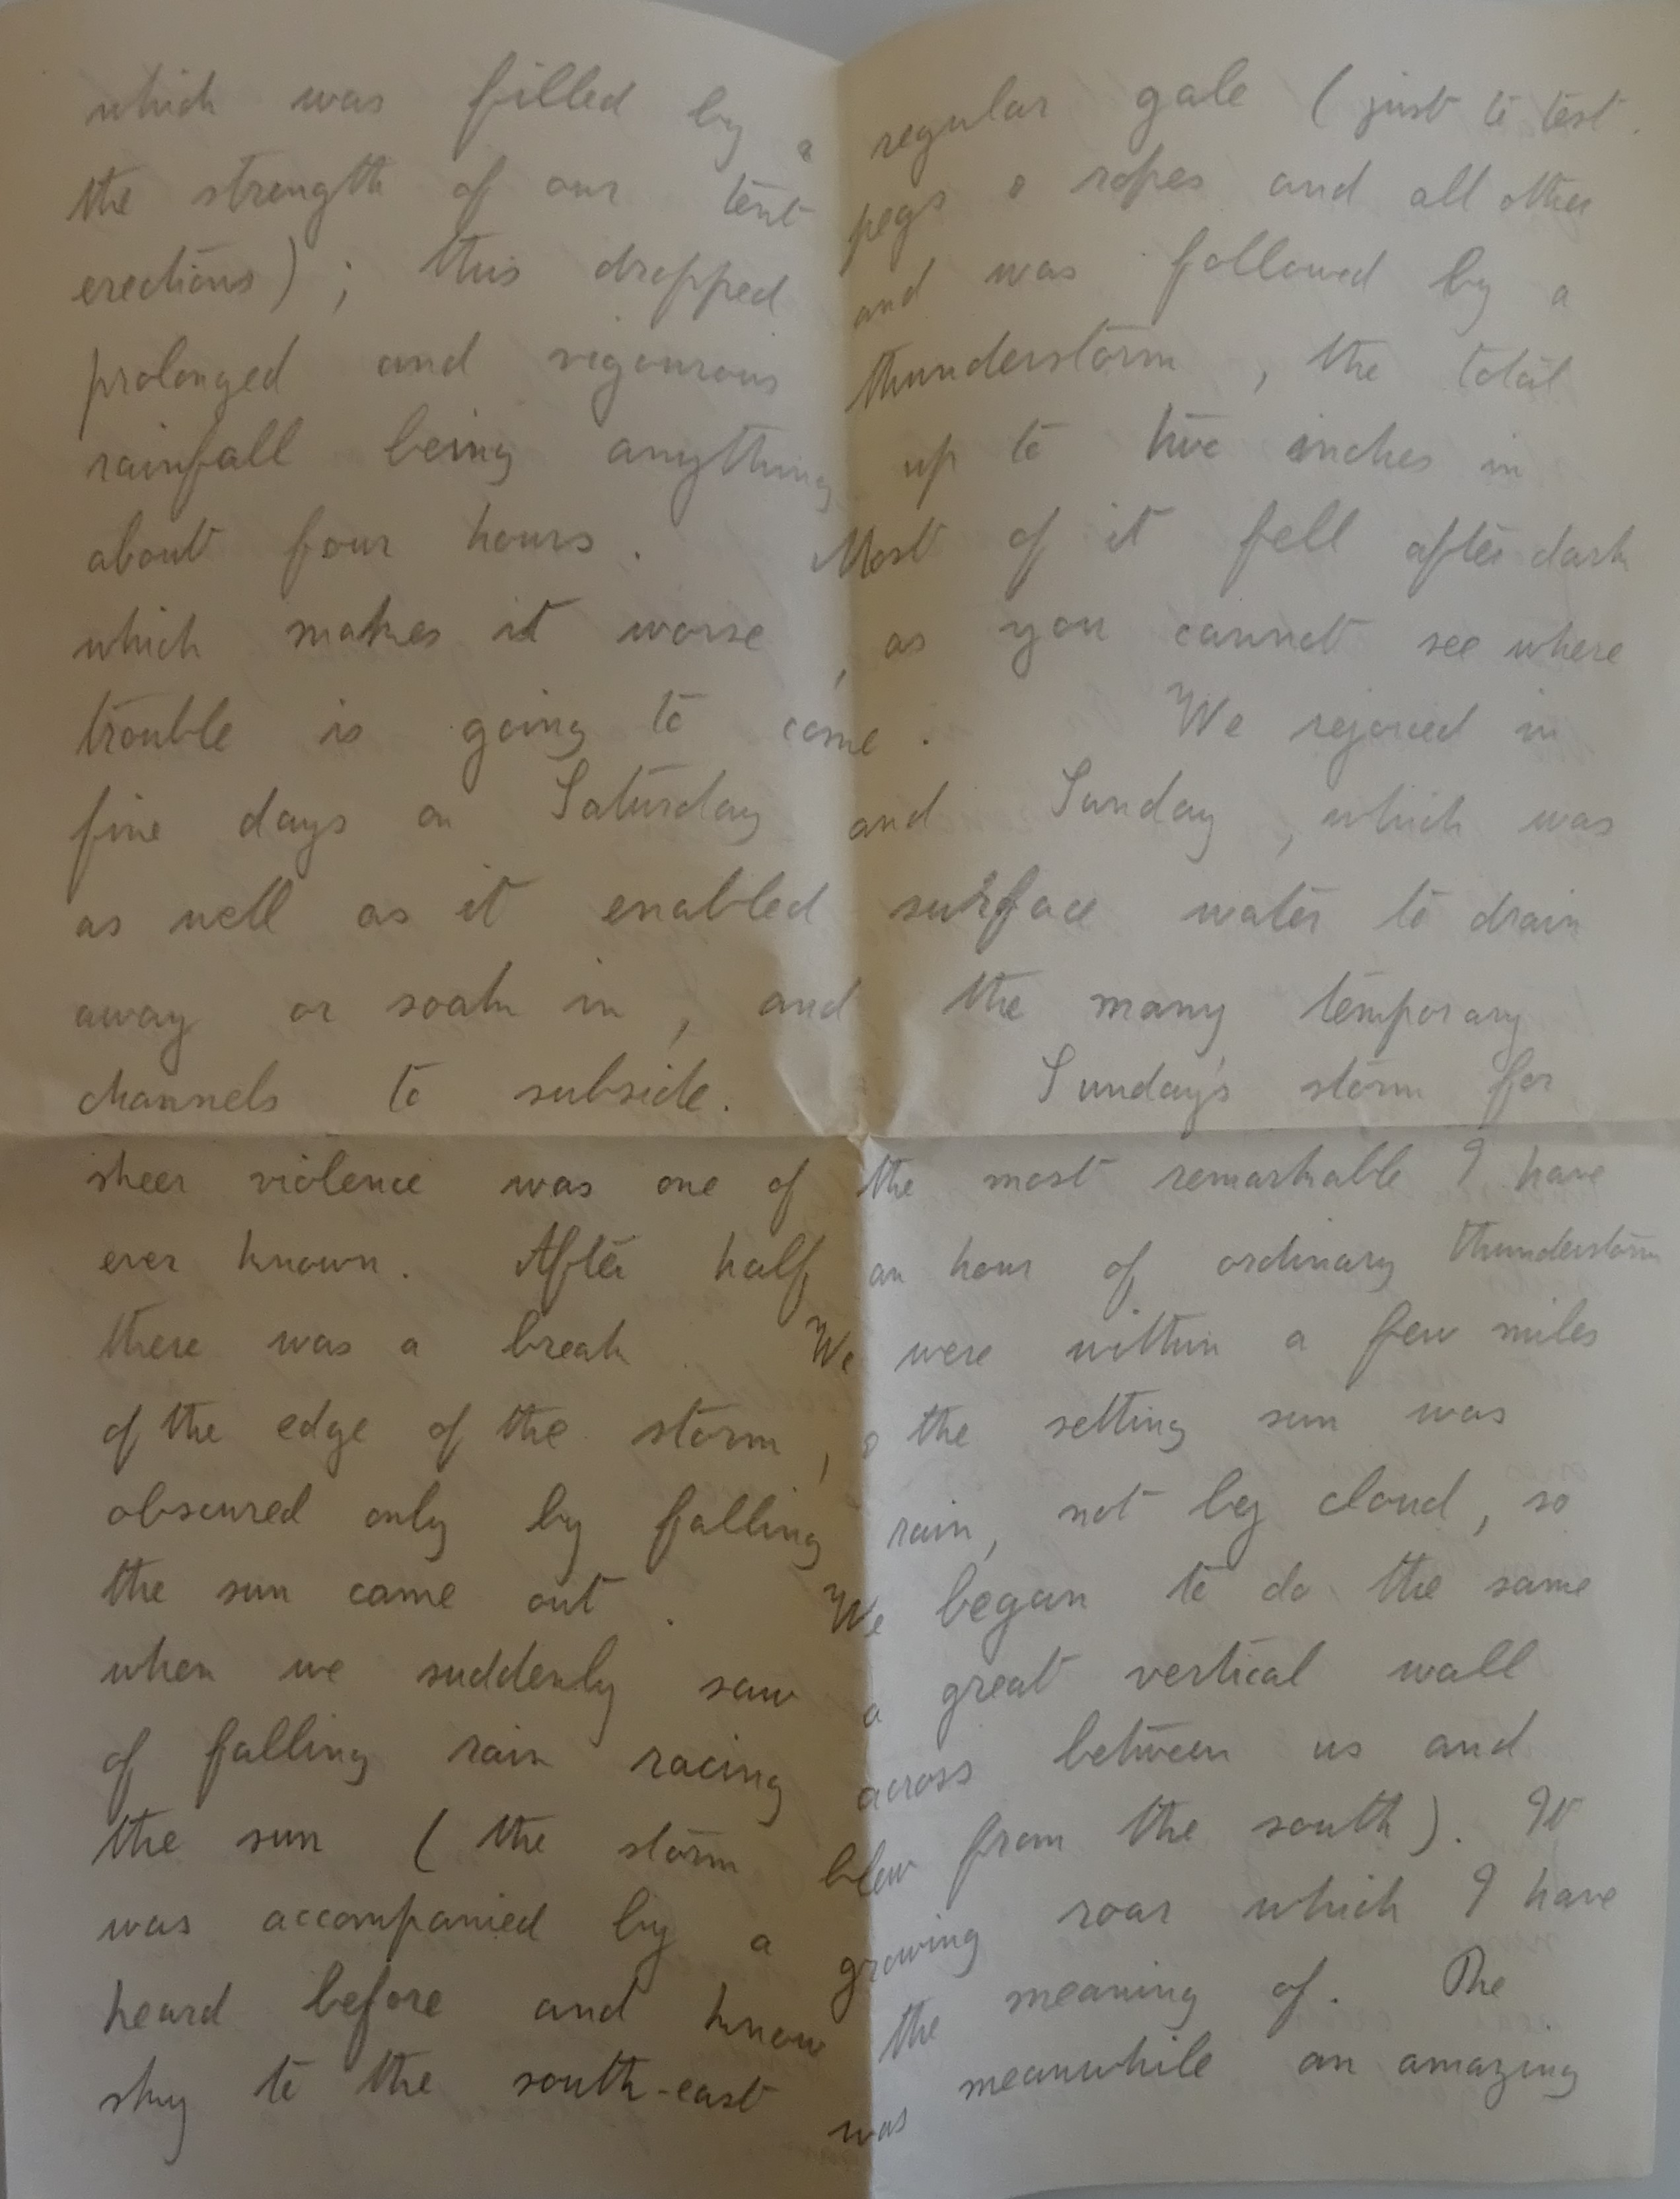 which was filled by a regular gale (just to test
the strength of our tent pegs & ropes and all other
erections); this dropped and was followed by a
prolonged and vigourous thunderstorm, the total
rainfall being anything up to five inches in
about four hours. Most of it fell after dark
which makes it worse, as you cannot see where
trouble is going to come. We rejoiced in
fine days on Saturday and Sunday, which was
as well as it enabled surface water to drain
away or soak in, and the many temporary
channels to subside. Sunday's storm for
sheer violence was one of the most remarkable I have
ever known. After half an hour of ordinary thunderstorm
there was a break. We were within a few miles
of the edge of the storm, & the setting sun was
obscured only by falling rain, not by cloud, so
the sun came out. We began to do the same
when we suddenly saw a great vertical wall
of falling rain racing across between us and
the sun (the storm blew from the south). It
was accompanied by a growing roar which I have
heard before and know the meaning of. The
sky to the south-east was meanwhile an amazing